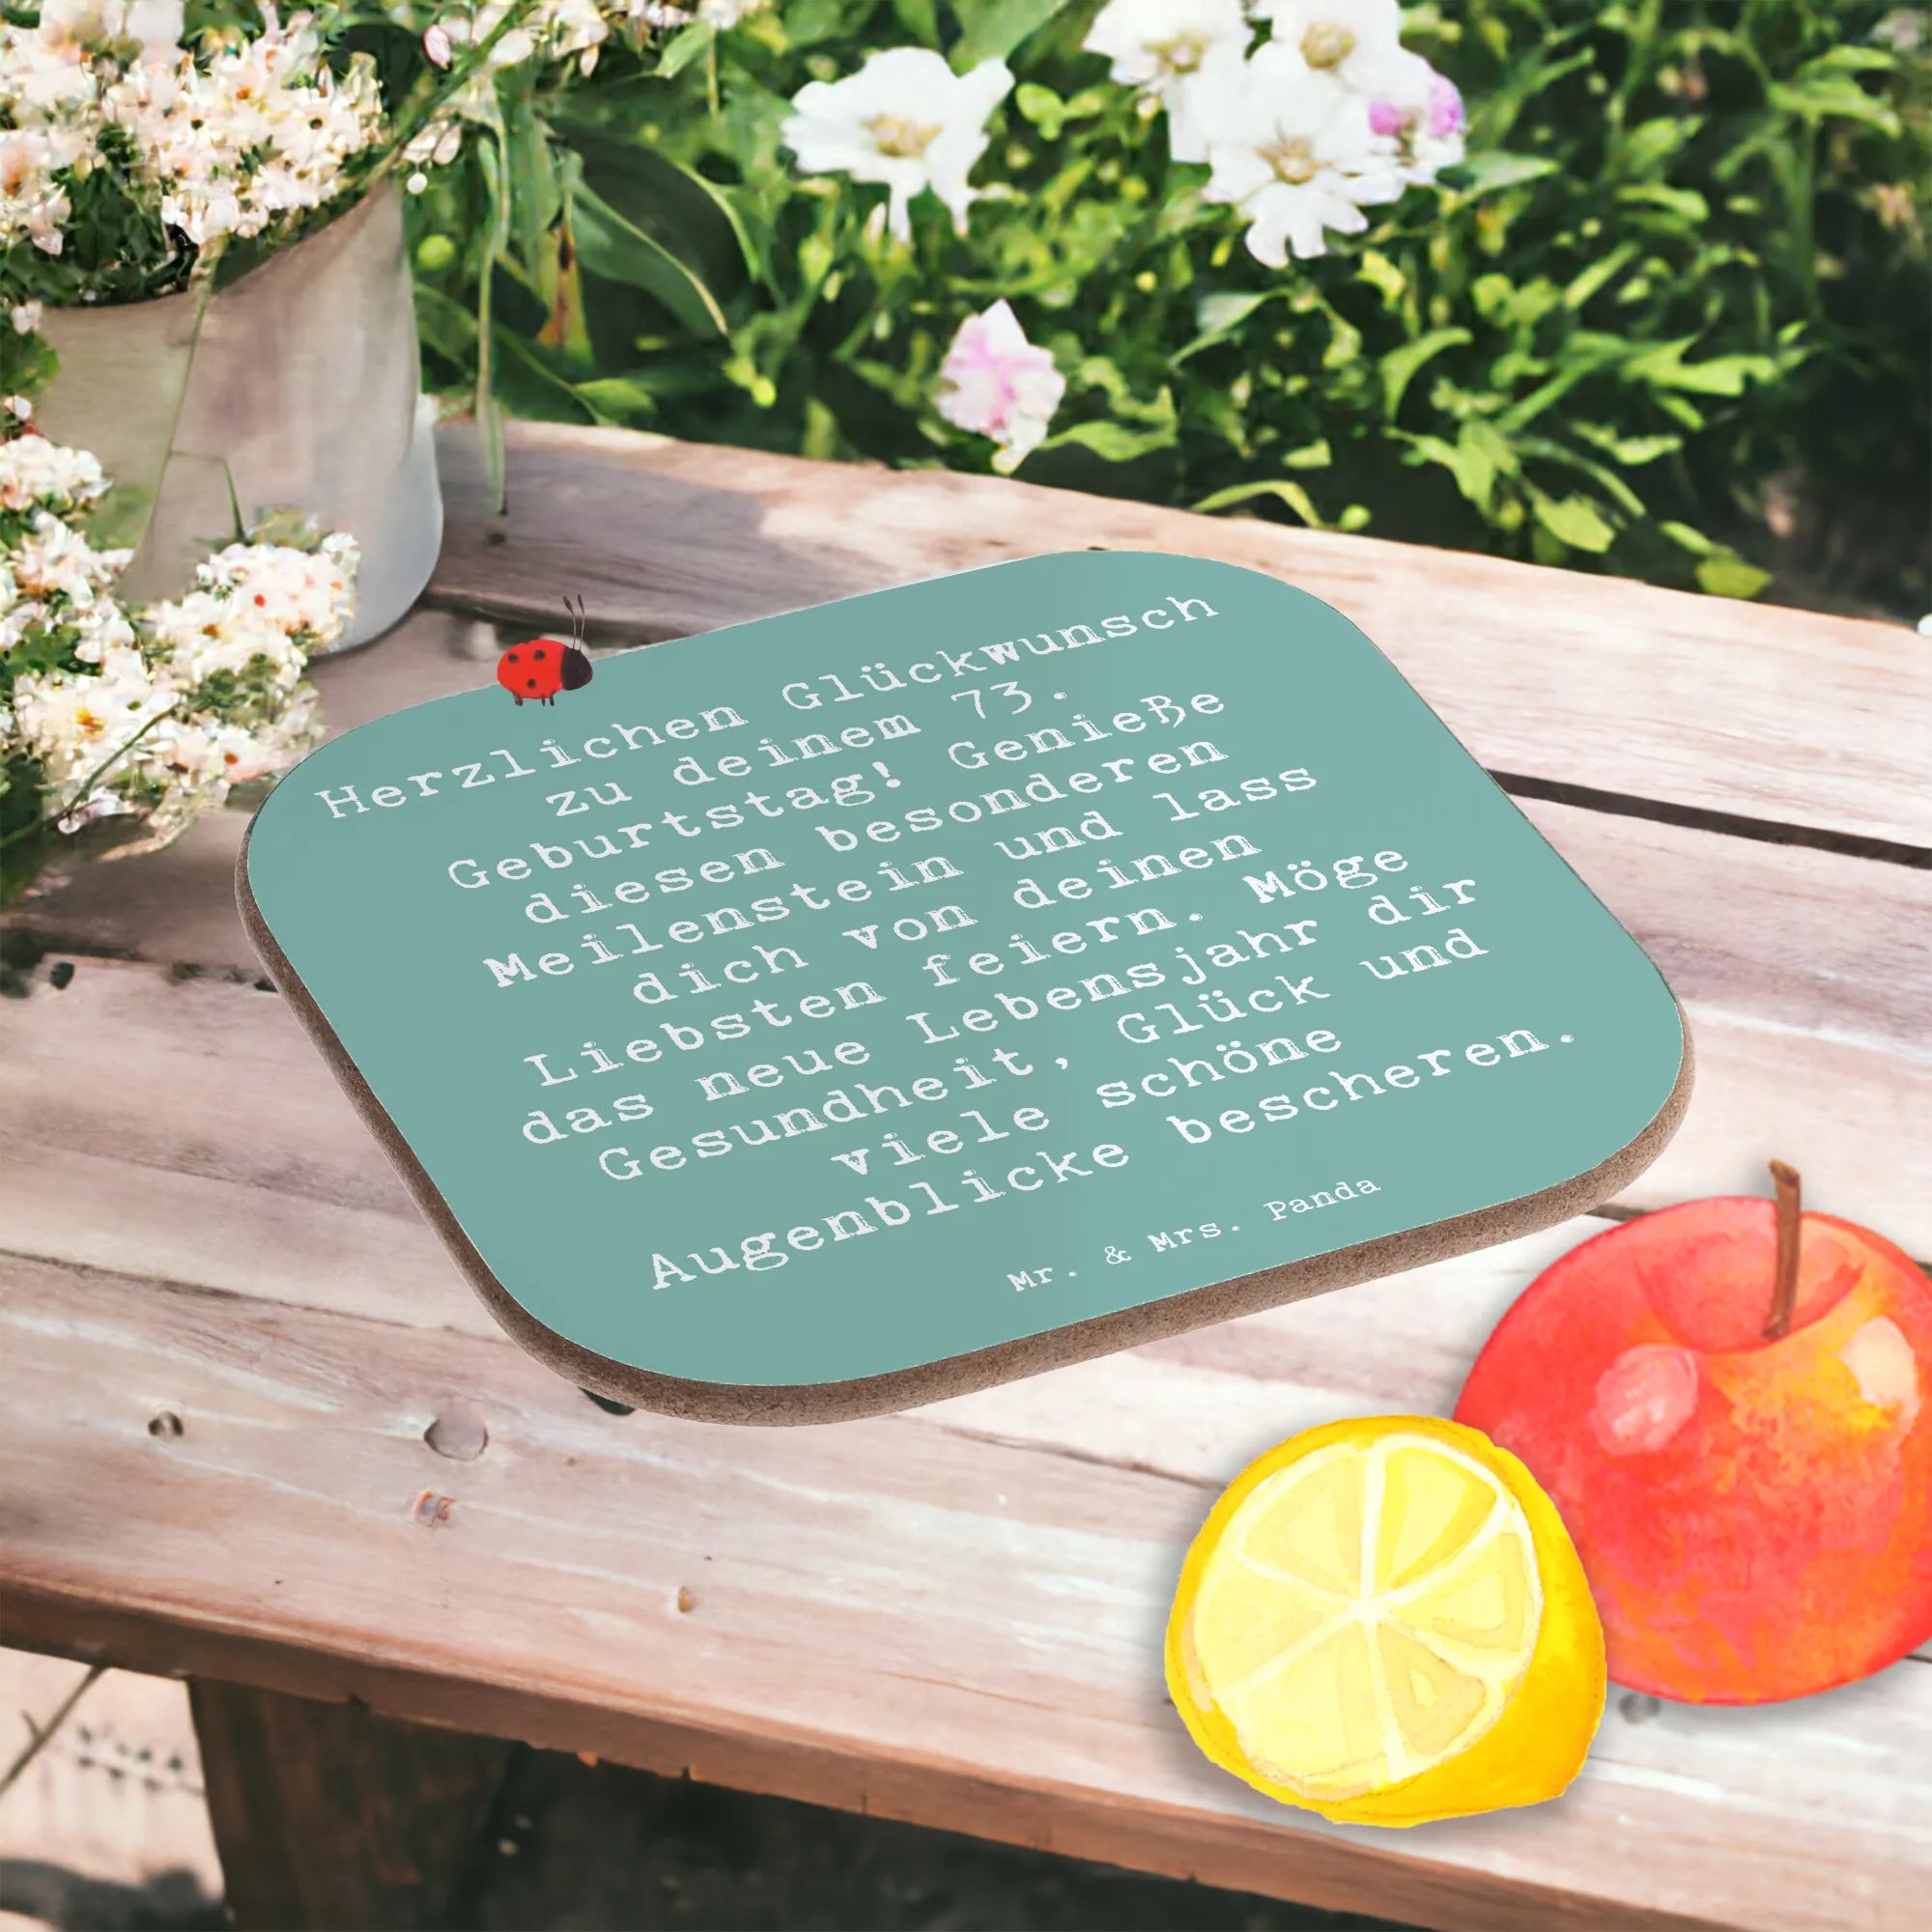 Herzlichen Glückwunsch
zu deinem 73.
Geburtstag! Genieße
diesen besonderen
Meilenstein und lass
dich von deinen
Liebsten feiern. Möge
das neue Lebensjahr dir
Gesundheit, Glück und
viele schöne
Augenblicke bescheren.
Mr. & Mrs. Panda